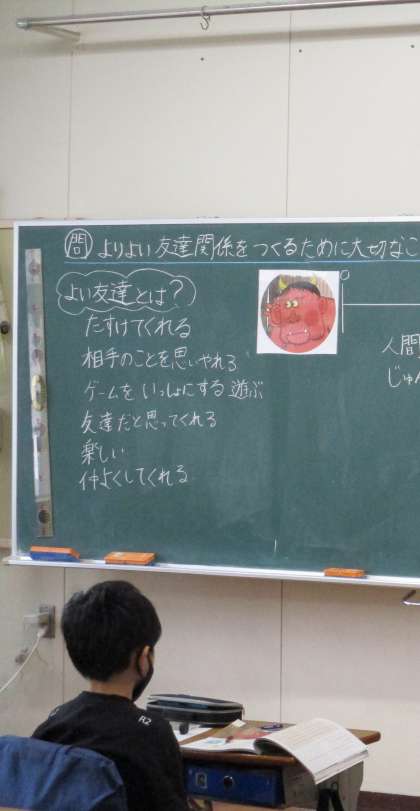 問 よりよい友達関係をつくるために大切なこ
よい友達とは?
たすけてくれる
相手のことを思いやれる
ゲームをいっしょにする 遊ぶ
友達だと思ってくれる
楽しい
仲よくしてくれる
人間
じゅん
R2